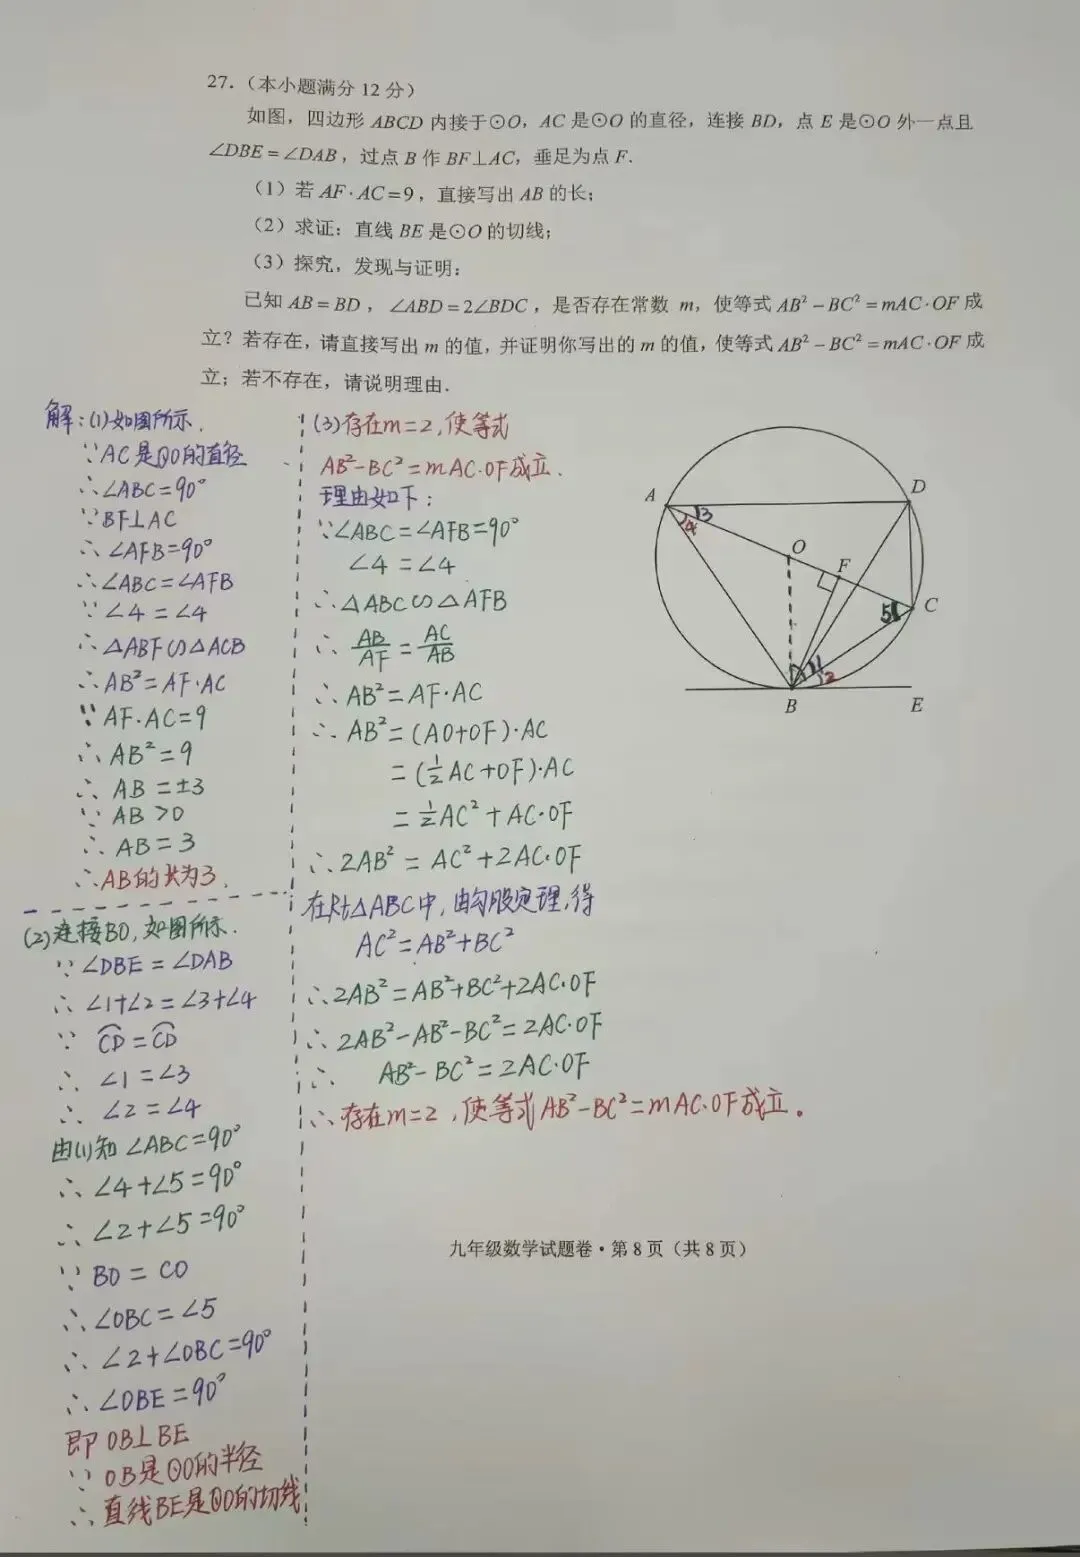 27.（本小题满分 12 分）
如图，四边形 ABCD 内接于⊙O，AC 是⊙O 的直径，连接 BD，点 E 是⊙O 外一点且
∠DBE=∠DAB，过点 B 作 BF⊥AC，垂足为点 F.
（1）若 AF·AC=9，直接写出 AB 的长；
（2）求证：直线 BE 是⊙O 的切线；
（3）探究，发现与证明：
已知 AB=BD，∠ABD=2∠BDC，是否存在常数 m，使等式 AB²－BC²=mAC·OF 成
立？若存在，请直接写出 m 的值，并证明你写出的 m 的值，使等式 AB²－BC²=mAC·OF 成
立；若不存在，请说明理由.
解：(1)如图所示.
∵AC是⊙O的直径
∴∠ABC=90°
∵BF⊥AC
∴∠AFB=90°
∴∠ABC=∠AFB
∵∠4=∠4
∴△ABF∽△ACB
∴AB²=AF·AC
∵AF·AC=9
∴AB²=9
∴AB=±3
∵AB>0
∴AB=3
∴AB的长为3.
(2)连接BO,如图所示.
∵∠DBE=∠DAB
∴∠1+∠2=∠3+∠4
∵CD=CD
∴∠1=∠3
∴∠2=∠4
由(1)知∠ABC=90°
∴∠4+∠5=90°
∴∠2+∠5=90°
∵BO=CO
∴∠OBC=∠5
∴∠2+∠OBC=90°
∴∠OBE=90°
即OB⊥BE
∵OB是⊙O的半径
∴直线BE是⊙O的切线
(3)存在m=2,使等式
AB²-BC²=mAC·OF成立.
理由如下：
∵∠ABC=∠AFB=90°
∠4=∠4
∴△ABC∽△AFB
∴AB/AF=AC/AB
∴AB²=AF·AC
∴AB²=(AO+OF)·AC
=(½AC+OF)·AC
=½AC²+AC·OF
∴2AB²=AC²+2AC·OF
在Rt△ABC中,由勾股定理,得
AC²=AB²+BC²
∴2AB²=AB²+BC²+2AC·OF
∴2AB²-AB²-BC²=2AC·OF
∴AB²-BC²=2AC·OF
∴存在m=2,使等式AB²-BC²=mAC·OF成立。
A
D
3
4
O
F
5
C
1
2
B
E
九年级数学试题卷·第 8 页（共 8 页）